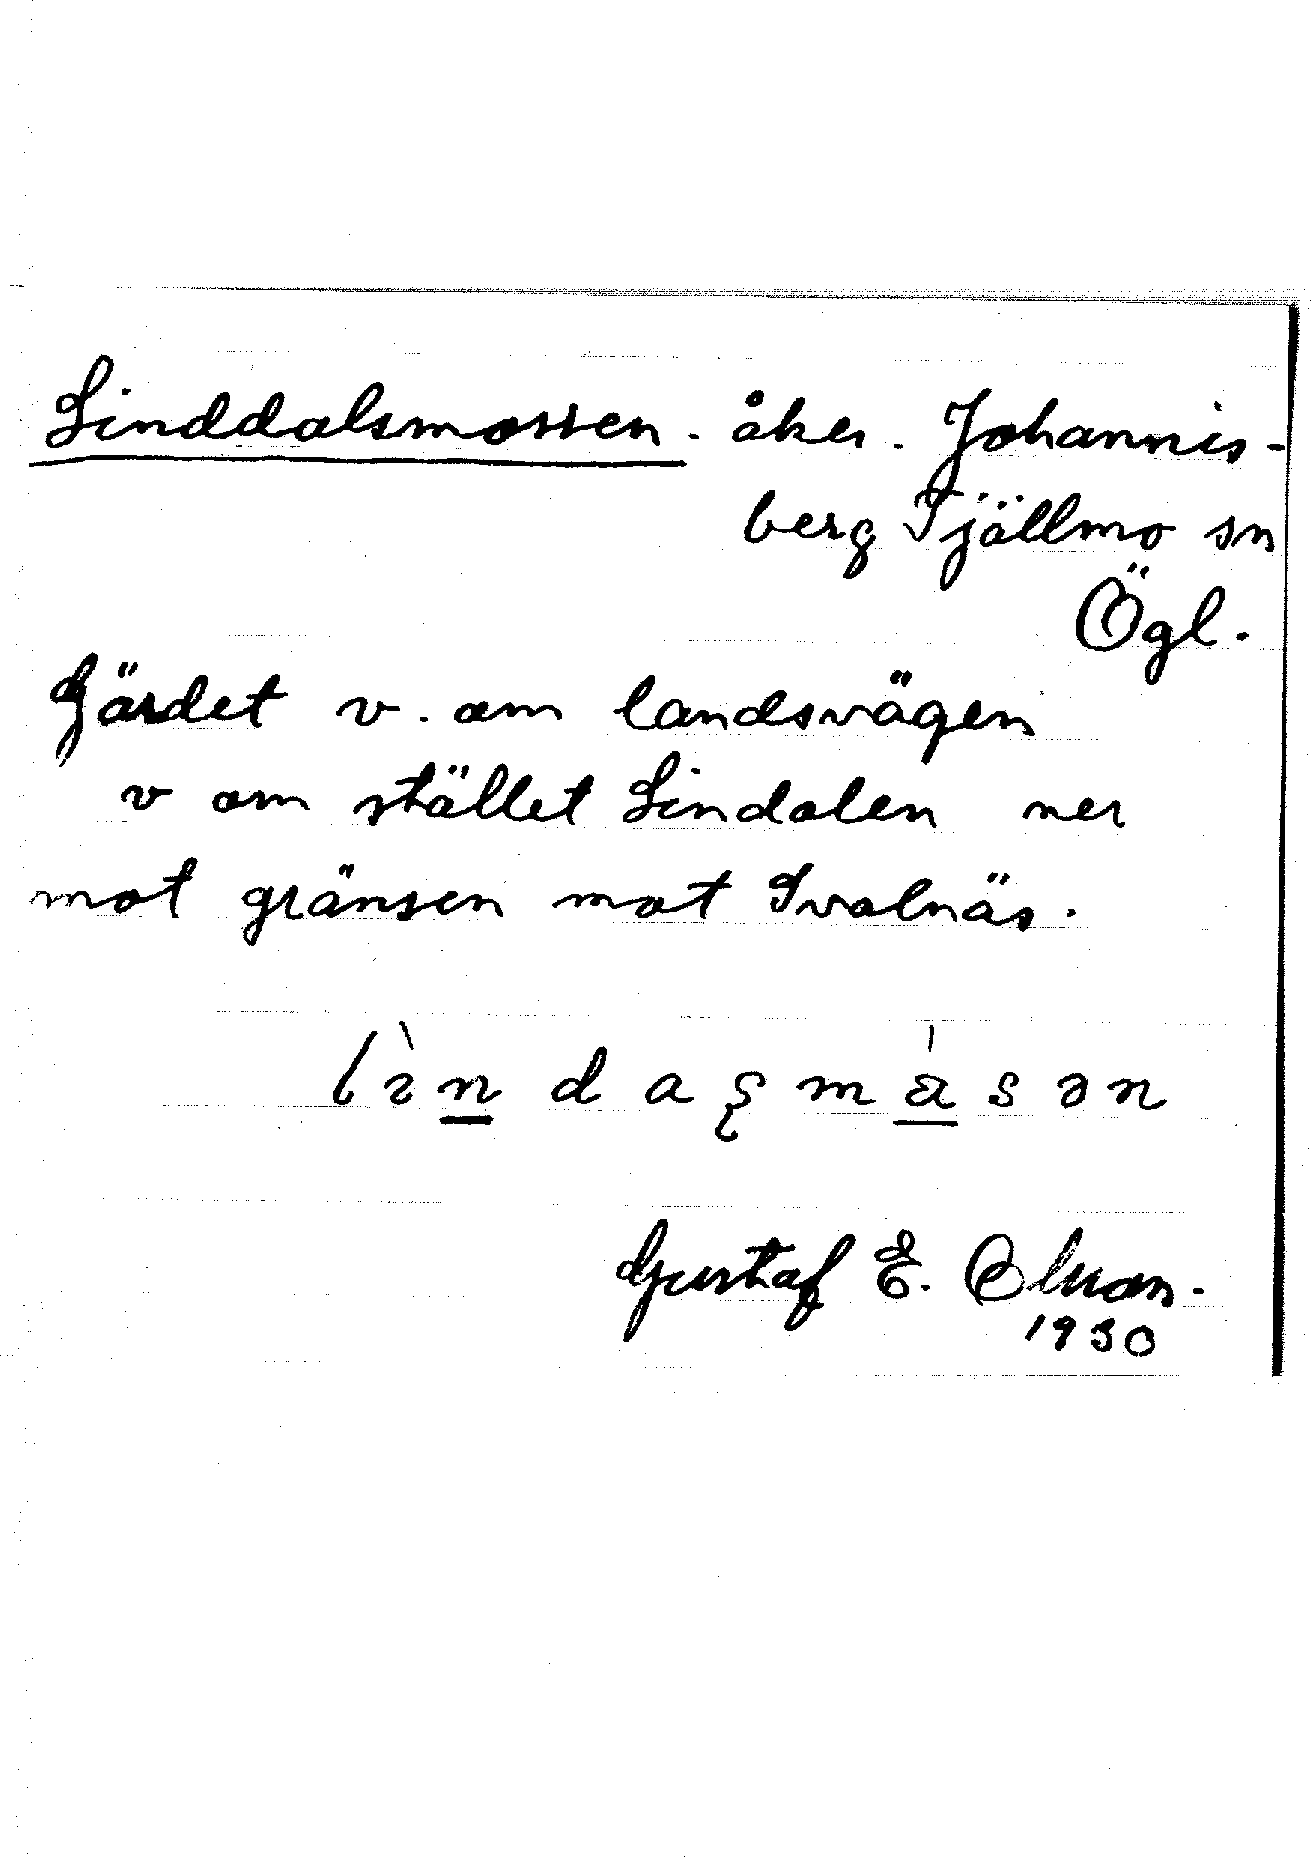 Linddalsmossen. åker. Johannis-
berg Tjällmo sn
Ögl.
Gärdet v. om landsvägen
v om stället Lindalen ner
mot gränsen mot Tvalnäs.
Gustaf E. Olsson.
1930